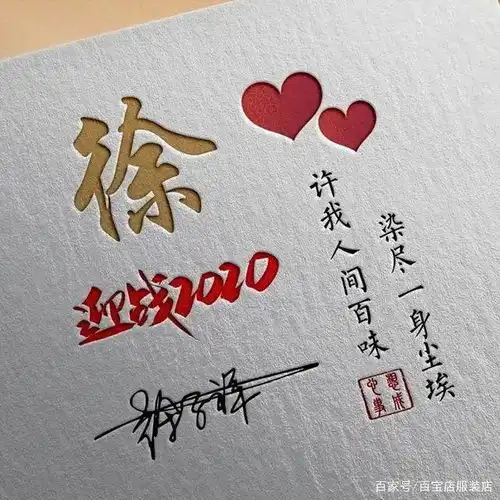 徐
迎战2020
许我人间百味
染尽一身尘埃
心想事成
百家号/百宝店服装店